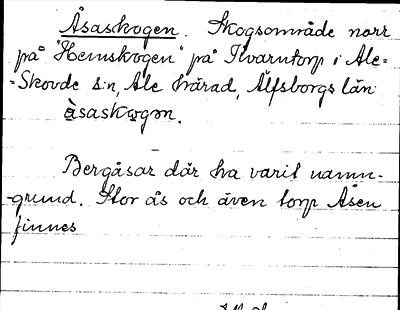 Åsaskogen. Skogsområde norr
på "Hemskogen" på Kvarntorp i Ale-
-Skövde s:n, Ale härad, Älfsborgs län
åsaskωgən.
Bergåsar där ha varit namn-
-grund. Stor ås och även torp Åsen
finnes